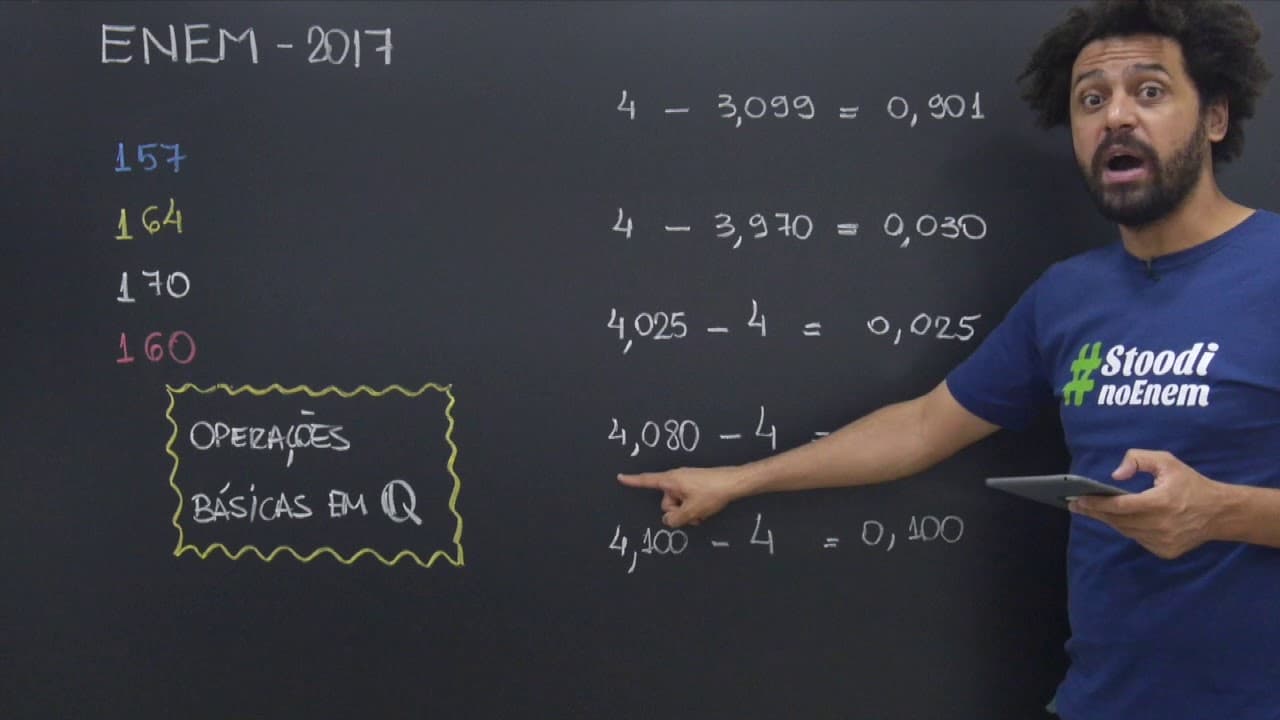 ENEM - 2017
157
164
170
160
OPERAÇÕES
BÁSICAS EM Q
4 - 3,099 = 0,901
4 - 3,970 = 0,030
4,025 - 4 = 0,025
4,080 - 4 =
4,100 - 4 = 0,100
#Stoodi
noEnem